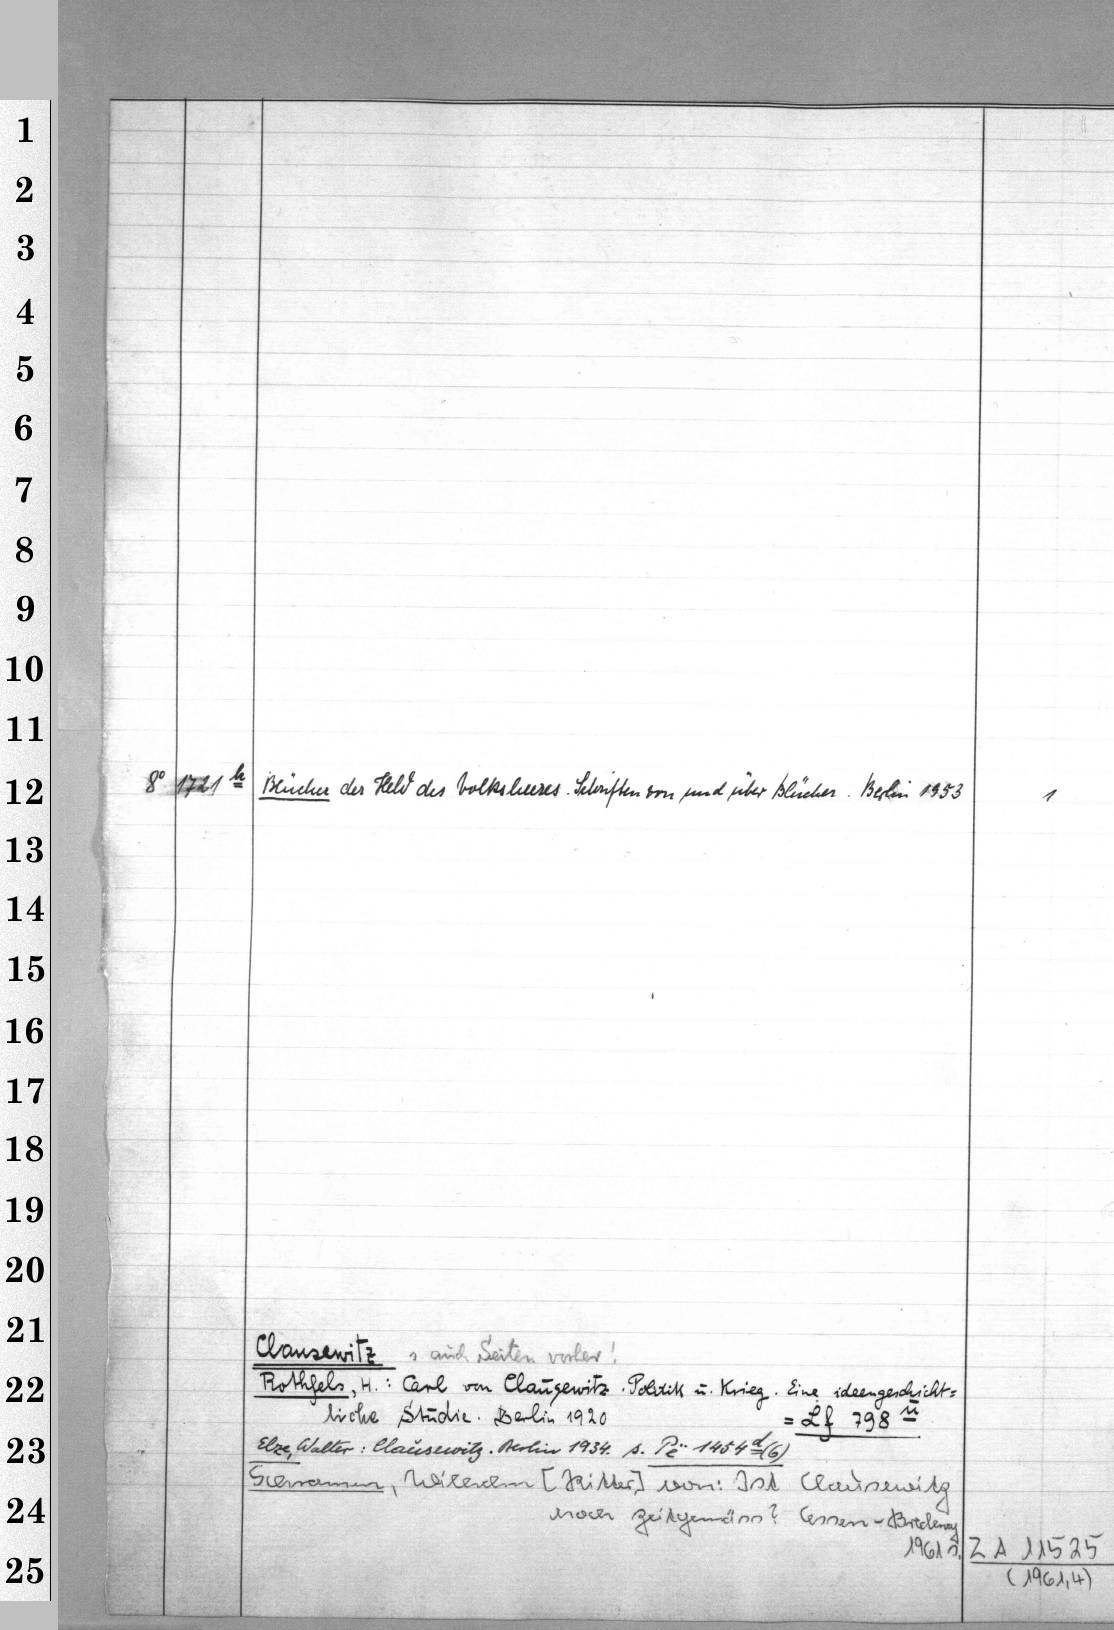 1
2
3
4
5
6
7
8
9
10
11
12
8° 1721 h Blücher der Held des Volksheeres. Schriften von und über Blücher. Berlin 1953 1
13
14
15
16
17
18
19
20
21
Clausewitz s. auch Seiten vorher!
22
Rothfels, H.: Carl von Clausewitz. Politik u. Krieg. Eine ideengeschicht=
liche Studie. Berlin 1920 = Lf 798 u
23
Elze, Walter: Clausewitz. Berlin 1934. s. Pc 1454 d (6)
von: Ist Clausewitz
24
noch zeitgemäss? Essen-Bredeney
1961 s. ZA 11525
25
(1961,4)